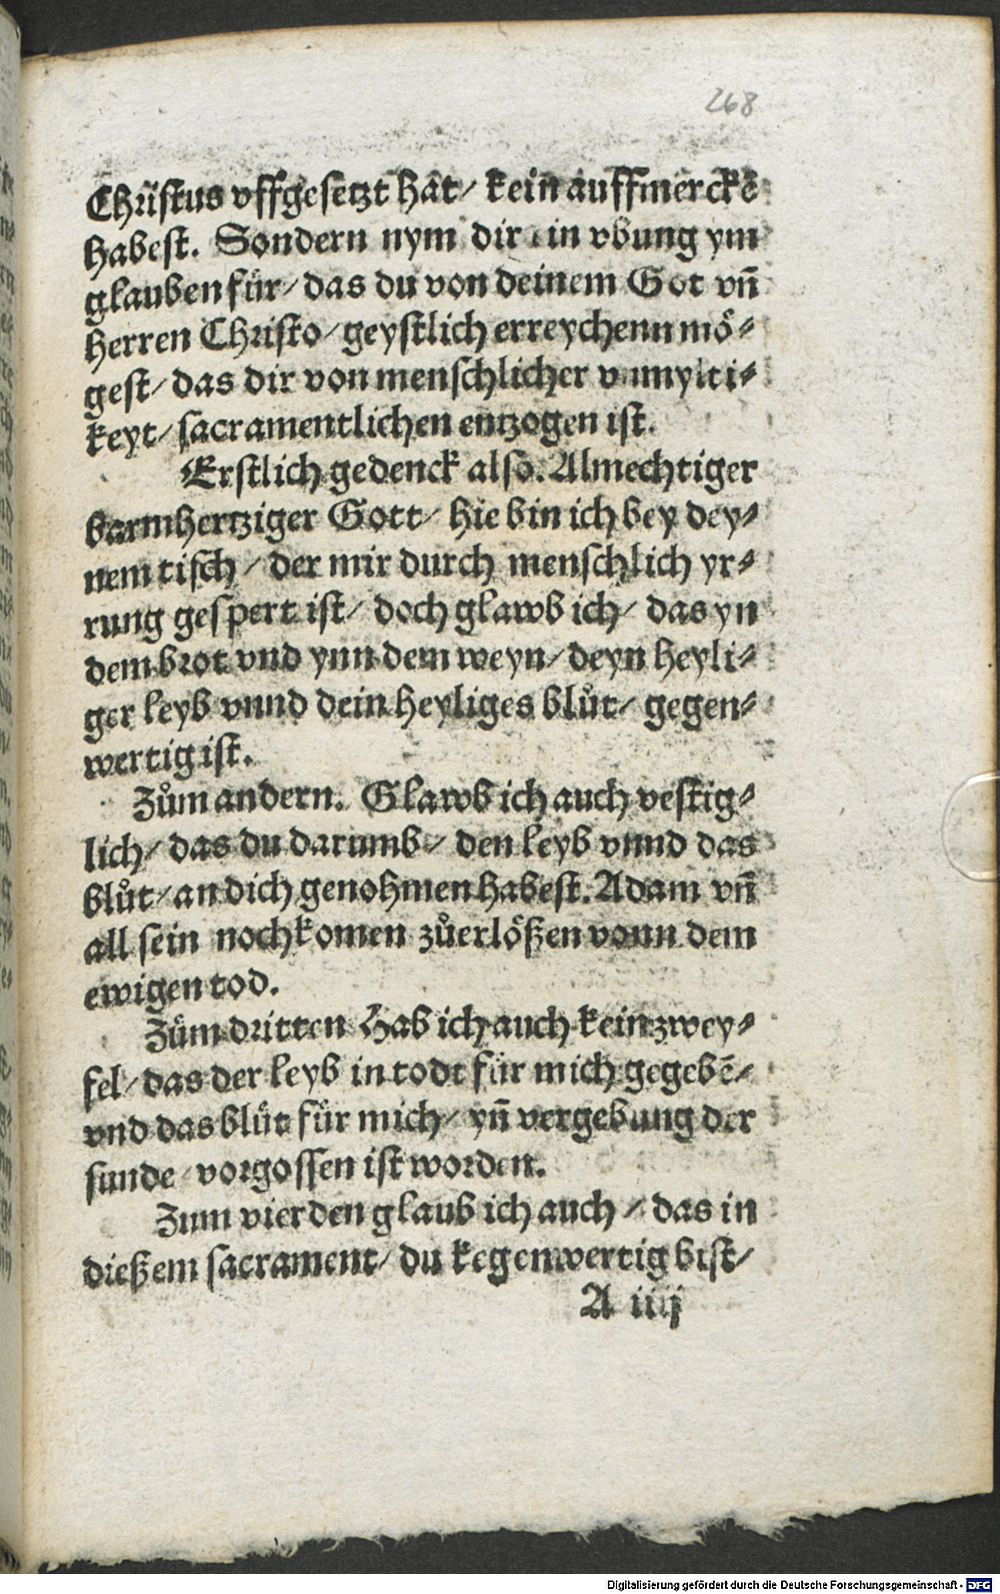 268
Christus vffgesetzt hat/ kein auffmerckē
habest. Sondern nym dir ein vbung ym
glauben für/ das du von deinem Got vn̄
Herren Christo/ geystlich erreychenn mö-
gest/ das dir von menschlicher vnmylti-
keyt/ sacramentlichen entzogen ist.
Erstlich gedenck also. Almechtiger
barmhertziger Gott/ hie bin ich bey dey-
nem tisch/ der mir durch menschlich yr-
rung gespert ist/ doch glawb ich/ das yn
dem brot vnd ynn dem weyn/ deyn heyli-
ger leyb vnnd dein heyliges blůt/ gegen-
wertig ist.
Zům andern. Glawb ich auch vestig-
lich/ das du darumb/ den leyb vnnd das
blůt/ an dich genohmen habest. Adam vn̄
all sein nochkomen zůerlößen vonn dem
ewigen tod.
Zům dritten Hab ich auch kein zwey-
fel/ das der leyb in todt für mich gegebē/
vnd das blůt für mich/ yn̄ vergebung der
sunde/ vorgossen ist worden.
Zum vierden glaub ich auch/ das in
dießem sacrament/ du kegenwertig bist/
A iiij
Digitalisierung gefördert durch die Deutsche Forschungsgemeinschaft - DFG